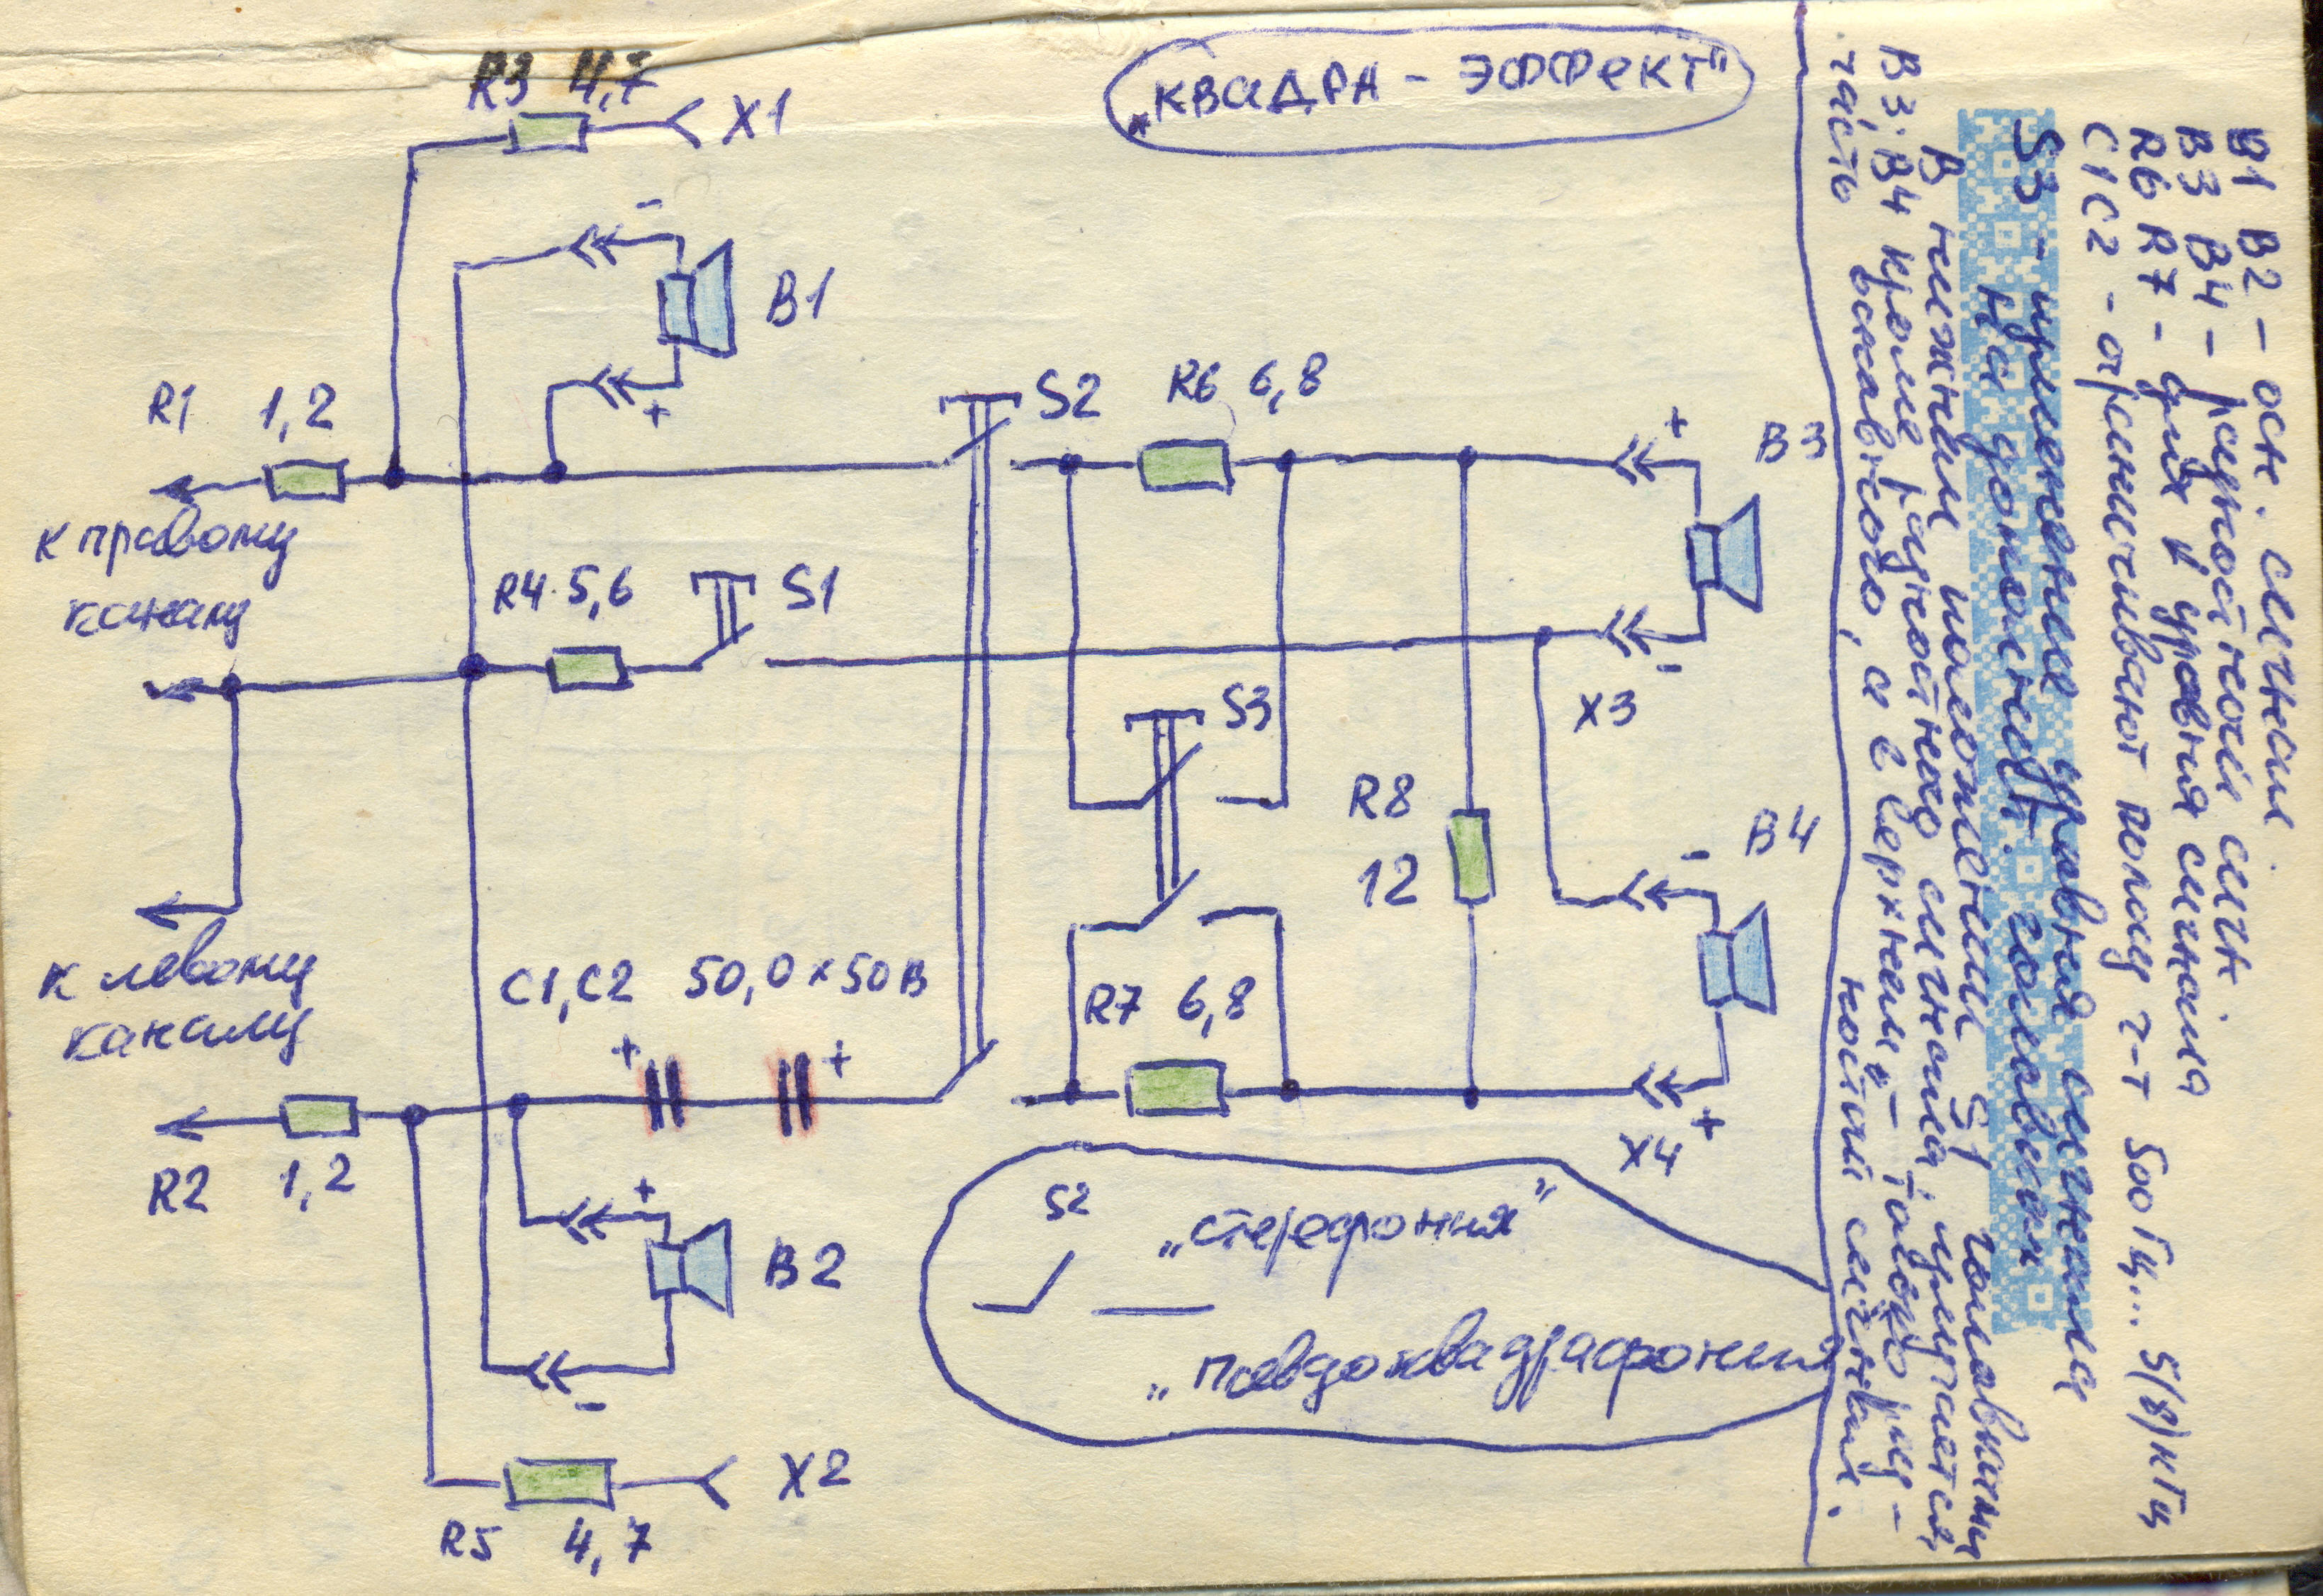 „КВАДРА - ЭФФЕКТ"
R3 4,7
X1
-
B1
+
R1 1,2
к правому
каналу
S2
R6 6,8
+
B3
R4 5,6
S1
-
X3
S3
R8
12
-
B4
к левому
каналу
C1, C2 50,0 x 50В
+ +
R7 6,8
+
X4
R2 1,2
+
B2
-
X2
R5 4,7
S2
„стереофония"
„псевдоквадрафония
B1 B2 - осн. сигнал
B3 B4 - разностной сигн.
R6 R7 - для ↓ уровня сигнала
C1C2 - ограничивают полосу ч-т 500 Гц... 5(8)кГц
S3 - применение уровня сигнала
на дополнит. головках
В нижнем положении S1 головками
B3, B4 кроме разностного сигнала, излучается
часть основного, а в верхнем - только раз-
ностный сигнал.